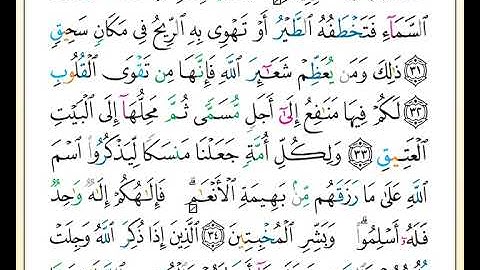 ٱلسَّمَآءِ فَتَخۡطَفُهُ ٱلطَّيۡرُ أَوۡ تَهۡوِي بِهِ ٱلرِّيحُ فِي مَكَانٖ سَحِيقٖ
٣١ ذَٰلِكَۖ وَمَن يُعَظِّمۡ شَعَٰٓئِرَ ٱللَّهِ فَإِنَّهَا مِن تَقۡوَى ٱلۡقُلُوبِ
٣٢ لَكُمۡ فِيهَا مَنَٰفِعُ إِلَىٰٓ أَجَلٖ مُّسَمّٗى ثُمَّ مَحِلُّهَآ إِلَى ٱلۡبَيۡتِ
ٱلۡعَتِيقِ ٣٣ وَلِكُلِّ أُمَّةٖ جَعَلۡنَا مَنسَكٗا لِّيَذۡكُرُواْ ٱسۡمَ
ٱللَّهِ عَلَىٰ مَا رَزَقَهُم مِّنۢ بَهِيمَةِ ٱلۡأَنۡعَٰمِۗ فَإِلَٰهُكُمۡ إِلَٰهٞ وَٰحِدٞ
فَلَهُۥٓ أَسۡلِمُواْۗ وَبَشِّرِ ٱلۡمُخۡبِتِينَ ٣٤ ٱلَّذِينَ إِذَا ذُكِرَ ٱللَّهُ وَجِلَتۡ